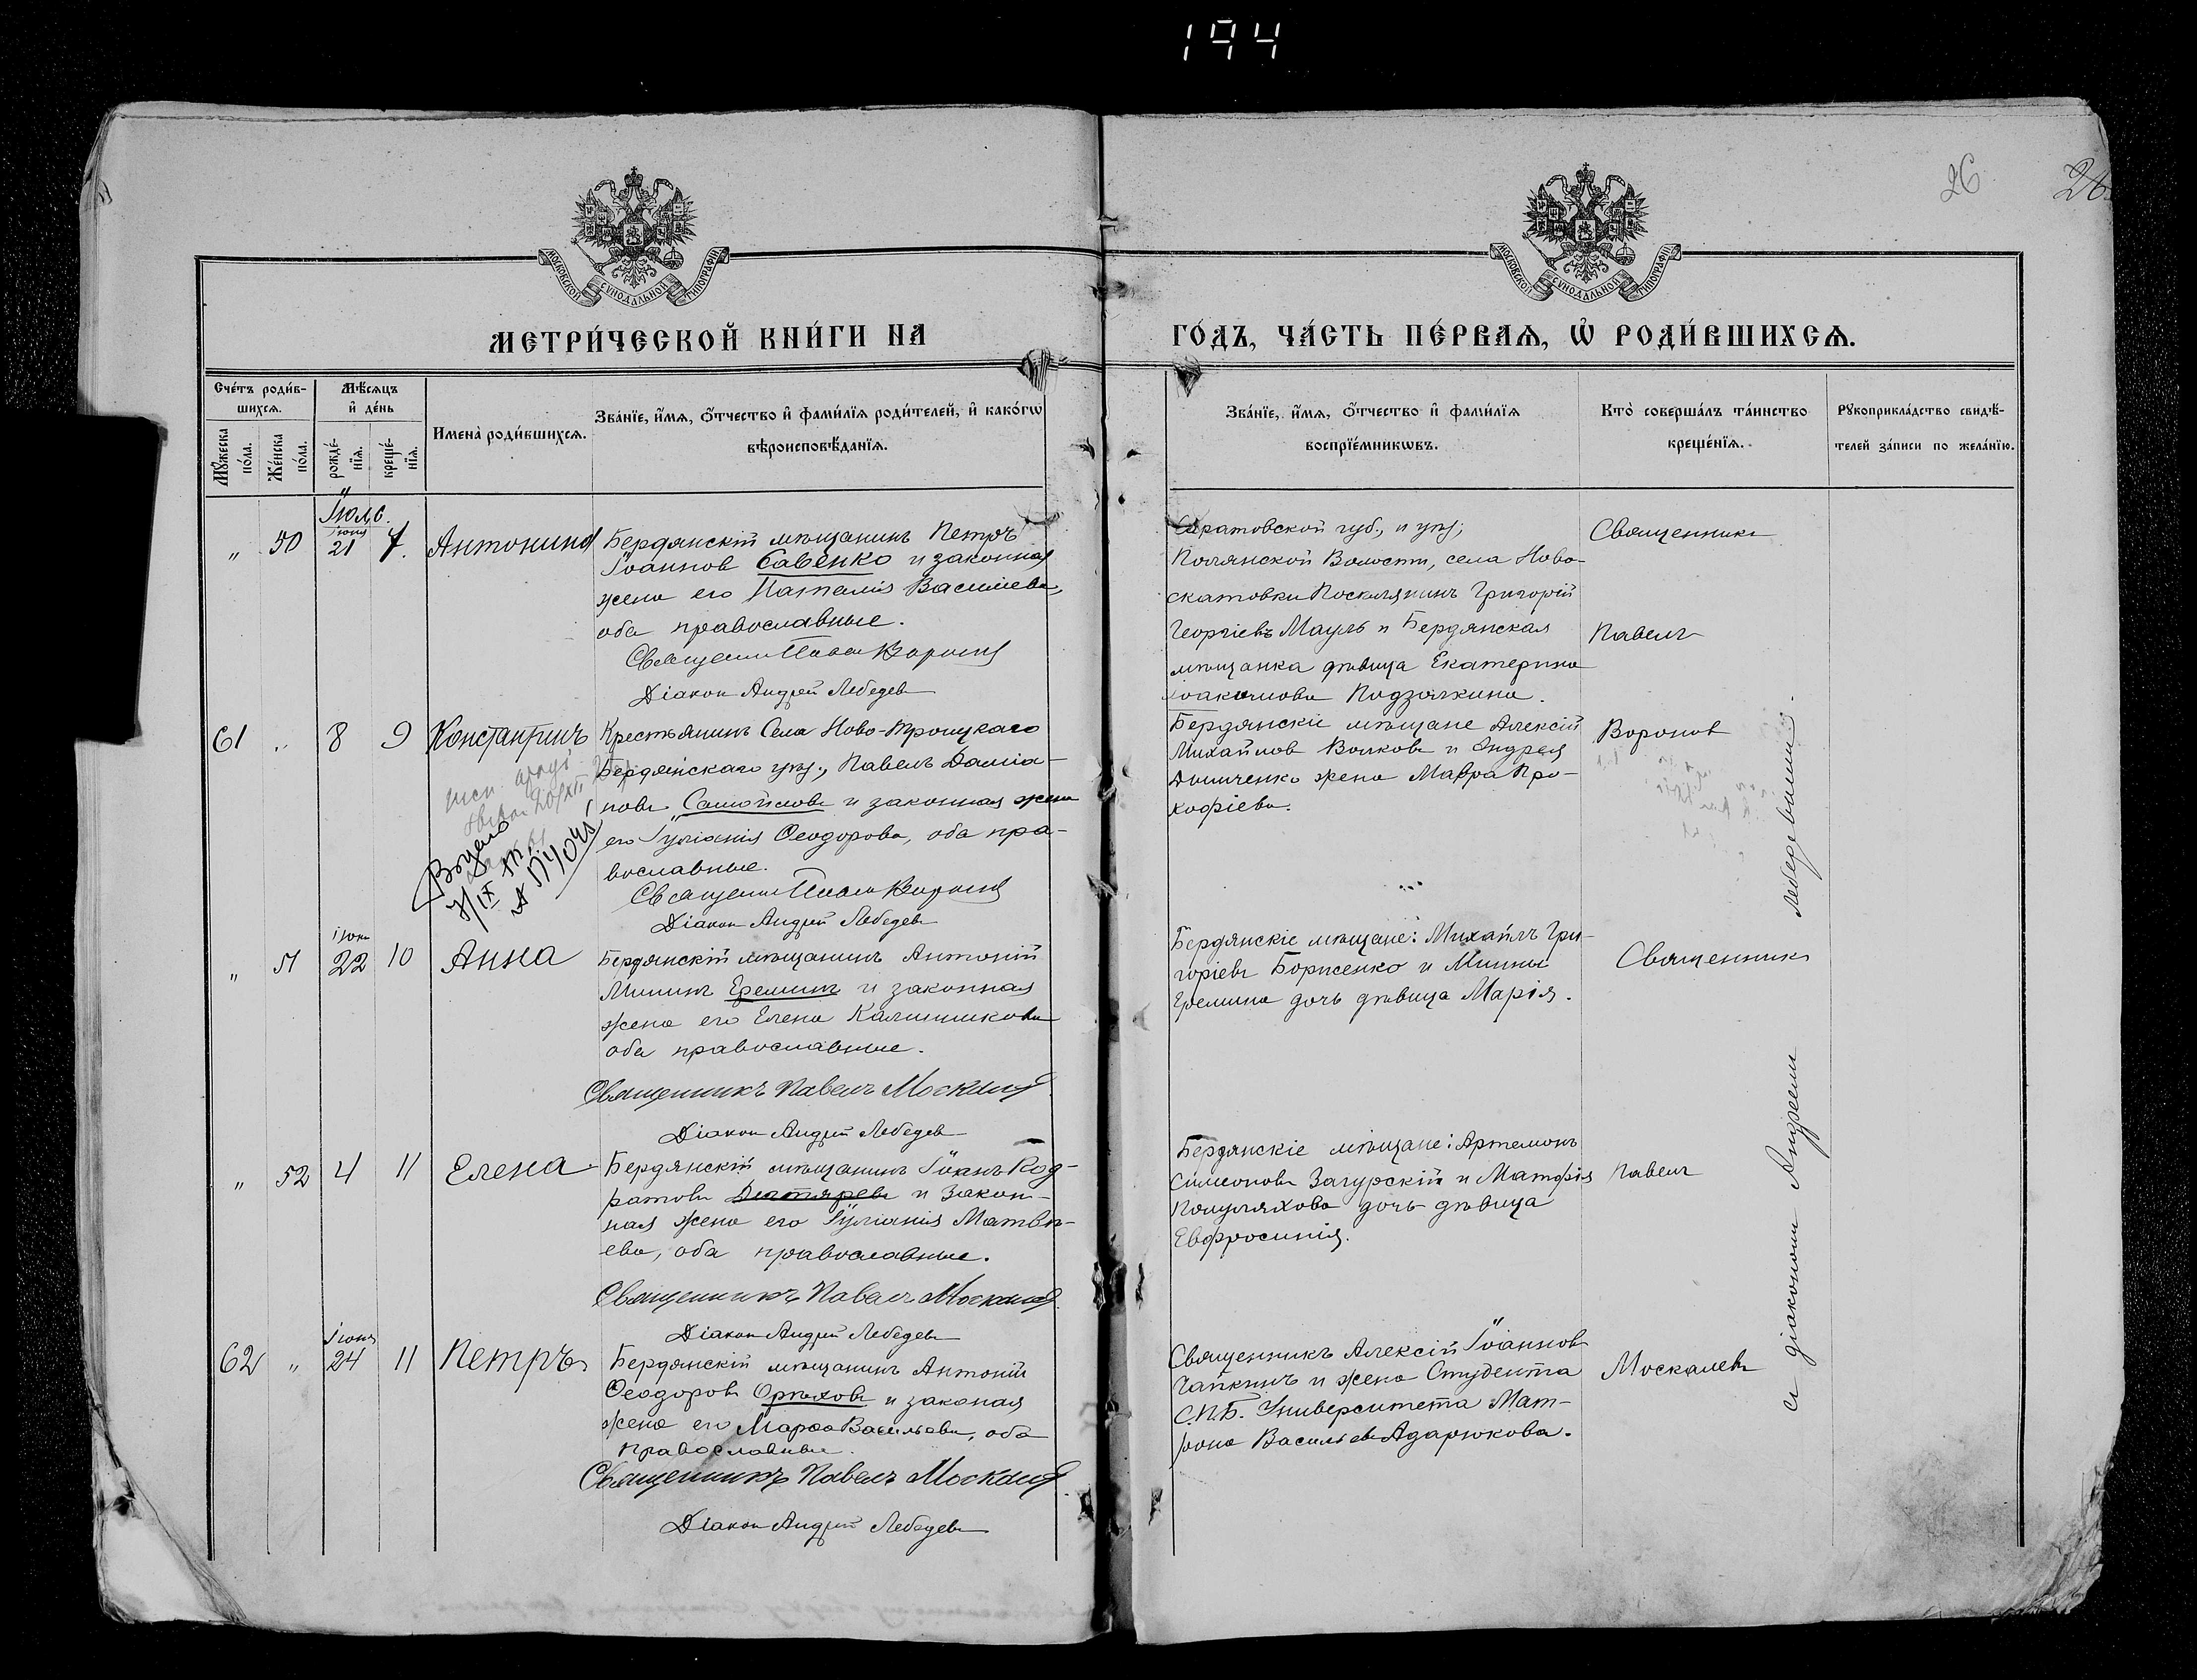 194
26
26
МОСКОВСКОЙ СѴНОДАЛЬНОЙ ТИПОГРАФІИ
МОСКОВСКОЙ СѴНОДАЛЬНОЙ ТИПОГРАФІИ
МЕТРИ́ЧЕСКОЙ КНИ́ГИ НА
ГО́ДЪ, ЧА́СТЬ ПЕ́РВАѦ, Ѽ РОДИ́ВШИХСѦ.
Сче́тъ роди́в-
шихсѧ.
Мꙋжеска по́ла.
Же́нска по́ла.
Мѣ́сѧцъ и҆ де́нь
рожде́-
нїѧ.
креще́-
нїѧ.
Имена̀ роди́вшихсѧ.
Зва́нїе, и҆́мѧ, ѻ҆́тчество и҆ фами́лїѧ роди́телей, и҆ како́гѡ
вѣроисповѣ́данїѧ.
Зва́нїе, и҆́мѧ, ѻ҆́тчество и҆ фами́лїѧ
воспрїе́мникѡвъ.
Кто̀ соверша́лъ та́инство
креще́нїѧ.
Рꙋкоприкла́дство свидѣ́-
телей за́писи по жела́нїю.
Іюль.
" 50 іюня 21 7. Антонина
Бердянскій мѣщанинъ Петръ
Іоаннов Савенко и законная
жена его Наталія Василіева,
оба православные.
Священ Павел Воронов
Діакон Андрей Лебедев
Саратовской губ., и уѣз;
волости, села Ново-
скатовки Поселянинъ Григорій
Георгіевъ Мауль и Бердянская
мѣщанка дѣвица Екатерина
Іоакимова
Священникъ
Павелъ
Воронов
61 " 8 9 Константинъ
Крестьянинъ Села Ново-Троицкаго
Бердянскаго уѣз., Павелъ Даміа-
новъ Самойлов и законная жена
его Іуліанія Ѳеодорова, оба пра-
вославные.
Священ Павел Воронов
Діакон Андрей Лебедев
Бердянскіе мѣщане Алексій
Михайлов Волков и Андрея
жена Мавра Про-
кофіева.
" 51 іюня 22 10 Анна
Бердянскій мѣщанинъ Антоній
Мининъ Ереминъ и законная
жена его Елена Калинникова
оба православные.
Священникъ Павелъ Москалев
Діакон Андрей Лебедев
Бердянскіе мѣщане: Михаилъ Гри-
горіевъ Борисенко и Минны
Еремина дочь дѣвица Марія.
Священникъ
Павелъ
Москалевъ
съ діакономъ Андреем Лебедевым.
" 52 4 11 Елена
Бердянскій мѣщанинъ Іоанъ Код-
ратовъ Дегтяревъ и закон-
ная жена его Іуліанія Матвѣ-
ева, оба православные.
Священникъ Павелъ Москалев.
Діакон Андрей Лебедев
Бердянскіе мѣщане: Артемонъ
Симеонов Загурскій и Матфія
дочь дѣвица
Евфросинія.
62 " іюня 24 11 Петръ
Бердянскій мѣщанинъ Антоній
Ѳеодоров Орѣховъ и законая
жена его Марѳа Васильева, оба
православные.
Священникъ Павелъ Москалев.
Діакон Андрей Лебедев
Священникъ Алексій Іоаннов
Чайкинъ и жена Студента
С.П.Б. Университета Мат-
рона Васильев Адарюкова.